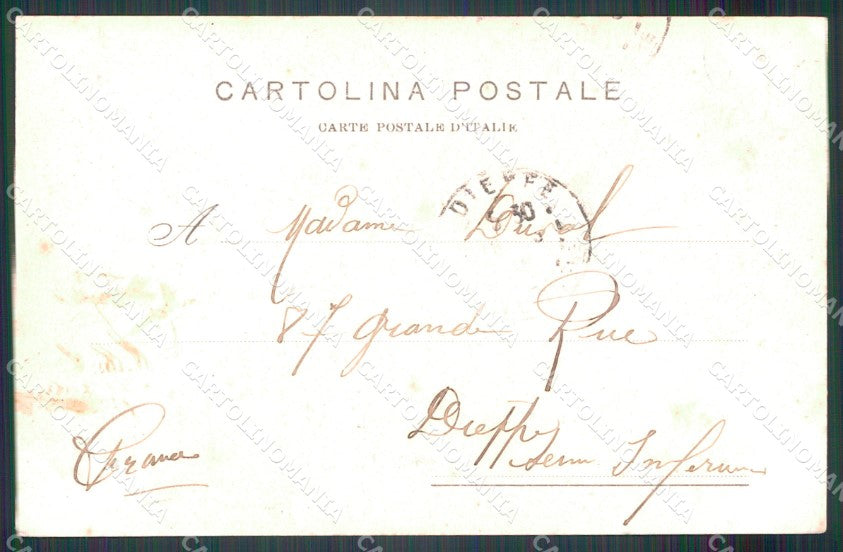 CARTOLINA POSTALE
CARTE POSTALE D'ITALIE
DIEPPE
30
A Madame Duval
87 Grande Rue
Dieppe
Seine Inferieure
France
CARTOLINOMANIA